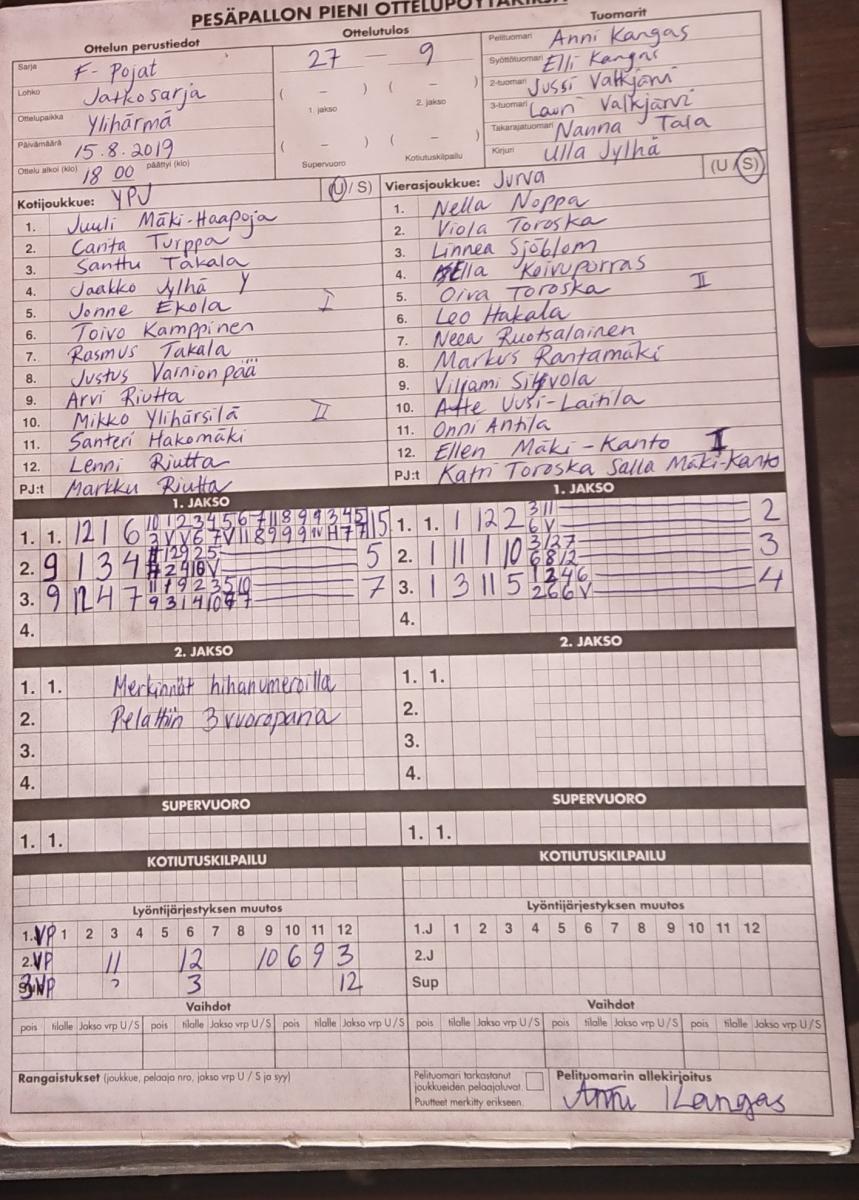 PESÄPALLON PIENI OTTELUPÖYTÄKIRJA
Ottelun perustiedot
Sarja F- Pojat
Lohko Jatkosarja
Ottelupaikka Ylihärmä
Päivämäärä 15.8.2019
Ottelu alkoi (klo) 18 00 päättyi (klo)
Ottelutulos
27 — 9
( – ) ( – )
1. jakso 2. jakso
( – ) ( – )
Supervuoro Kotiutuskilpailu
Tuomarit
Pelituomari Anni Kangas
Syöttötuomari Elli Kangas
2-tuomari Jussi Valkjärvi
3-tuomari Lauri Valkjärvi
Takarajatuomari Nanna Tala
Kirjuri Ulla Jylhä
Kotijoukkue: YPJ (U / S)
1. Juuli Mäki-Haapoja
2. Carita Turppa
3. Santtu Takala
4. Jaakko Jylhä Y
5. Jonne Ekola I
6. Toivo Kamppinen
7. Rasmus Takala
8. Justus Varnionpää
9. Arvi Riutta
10. Mikko Ylihärsilä II
11. Santeri Hakomäki
12. Lenni Riutta
PJ:t Markku Riutta
Vierasjoukkue: Jurva (U / S)
1. Nella Noppa
2. Viola Toroska
3. Linnea Sjöblom
4. Ella Koivuporras
5. Oiva Toroska II
6. Leo Hakala
7. Neea Ruotsalainen
8. Markus Rantamäki
9. Viljami
10. Atte Uusi-Laitila
11. Onni Antila
12. Ellen Mäki-Kanto I
PJ:t Katri Toroska Salla Mäki-Kanto
1. JAKSO
1. 1. 12 1 6 15
2. 9 1 3 4 5
3. 9 12 4 7 7
4.
1. JAKSO
1. 1. 1 12 2 2
2. 1 11 1 10 3
3. 1 3 11 5 4
4.
2. JAKSO
1. 1. Merkinnät hihanumeroilla
2. Pelattiin 3 vuoroparia
3.
4.
2. JAKSO
1. 1.
2.
3.
4.
SUPERVUORO
1. 1.
SUPERVUORO
1. 1.
KOTIUTUSKILPAILU
KOTIUTUSKILPAILU
Lyöntijärjestyksen muutos
1.VP 1 2 3 4 5 6 7 8 9 10 11 12
2.VP 11 12 10 6 9 3
3VP ? 3 12
Lyöntijärjestyksen muutos
1.J 1 2 3 4 5 6 7 8 9 10 11 12
2.J
Sup
Vaihdot
pois tilalle Jakso vrp U/S pois tilalle Jakso vrp U/S pois tilalle Jakso vrp U/S
Vaihdot
pois tilalle Jakso vrp U/S pois tilalle Jakso vrp U/S pois tilalle Jakso vrp U/S
Rangaistukset (joukkue, pelaaja nro, jakso vrp U / S ja syy)
Pelituomari tarkastanut
joukkueiden pelaajaluvat.
Puutteet merkitty erikseen.
Pelituomarin allekirjoitus
Anni Kangas